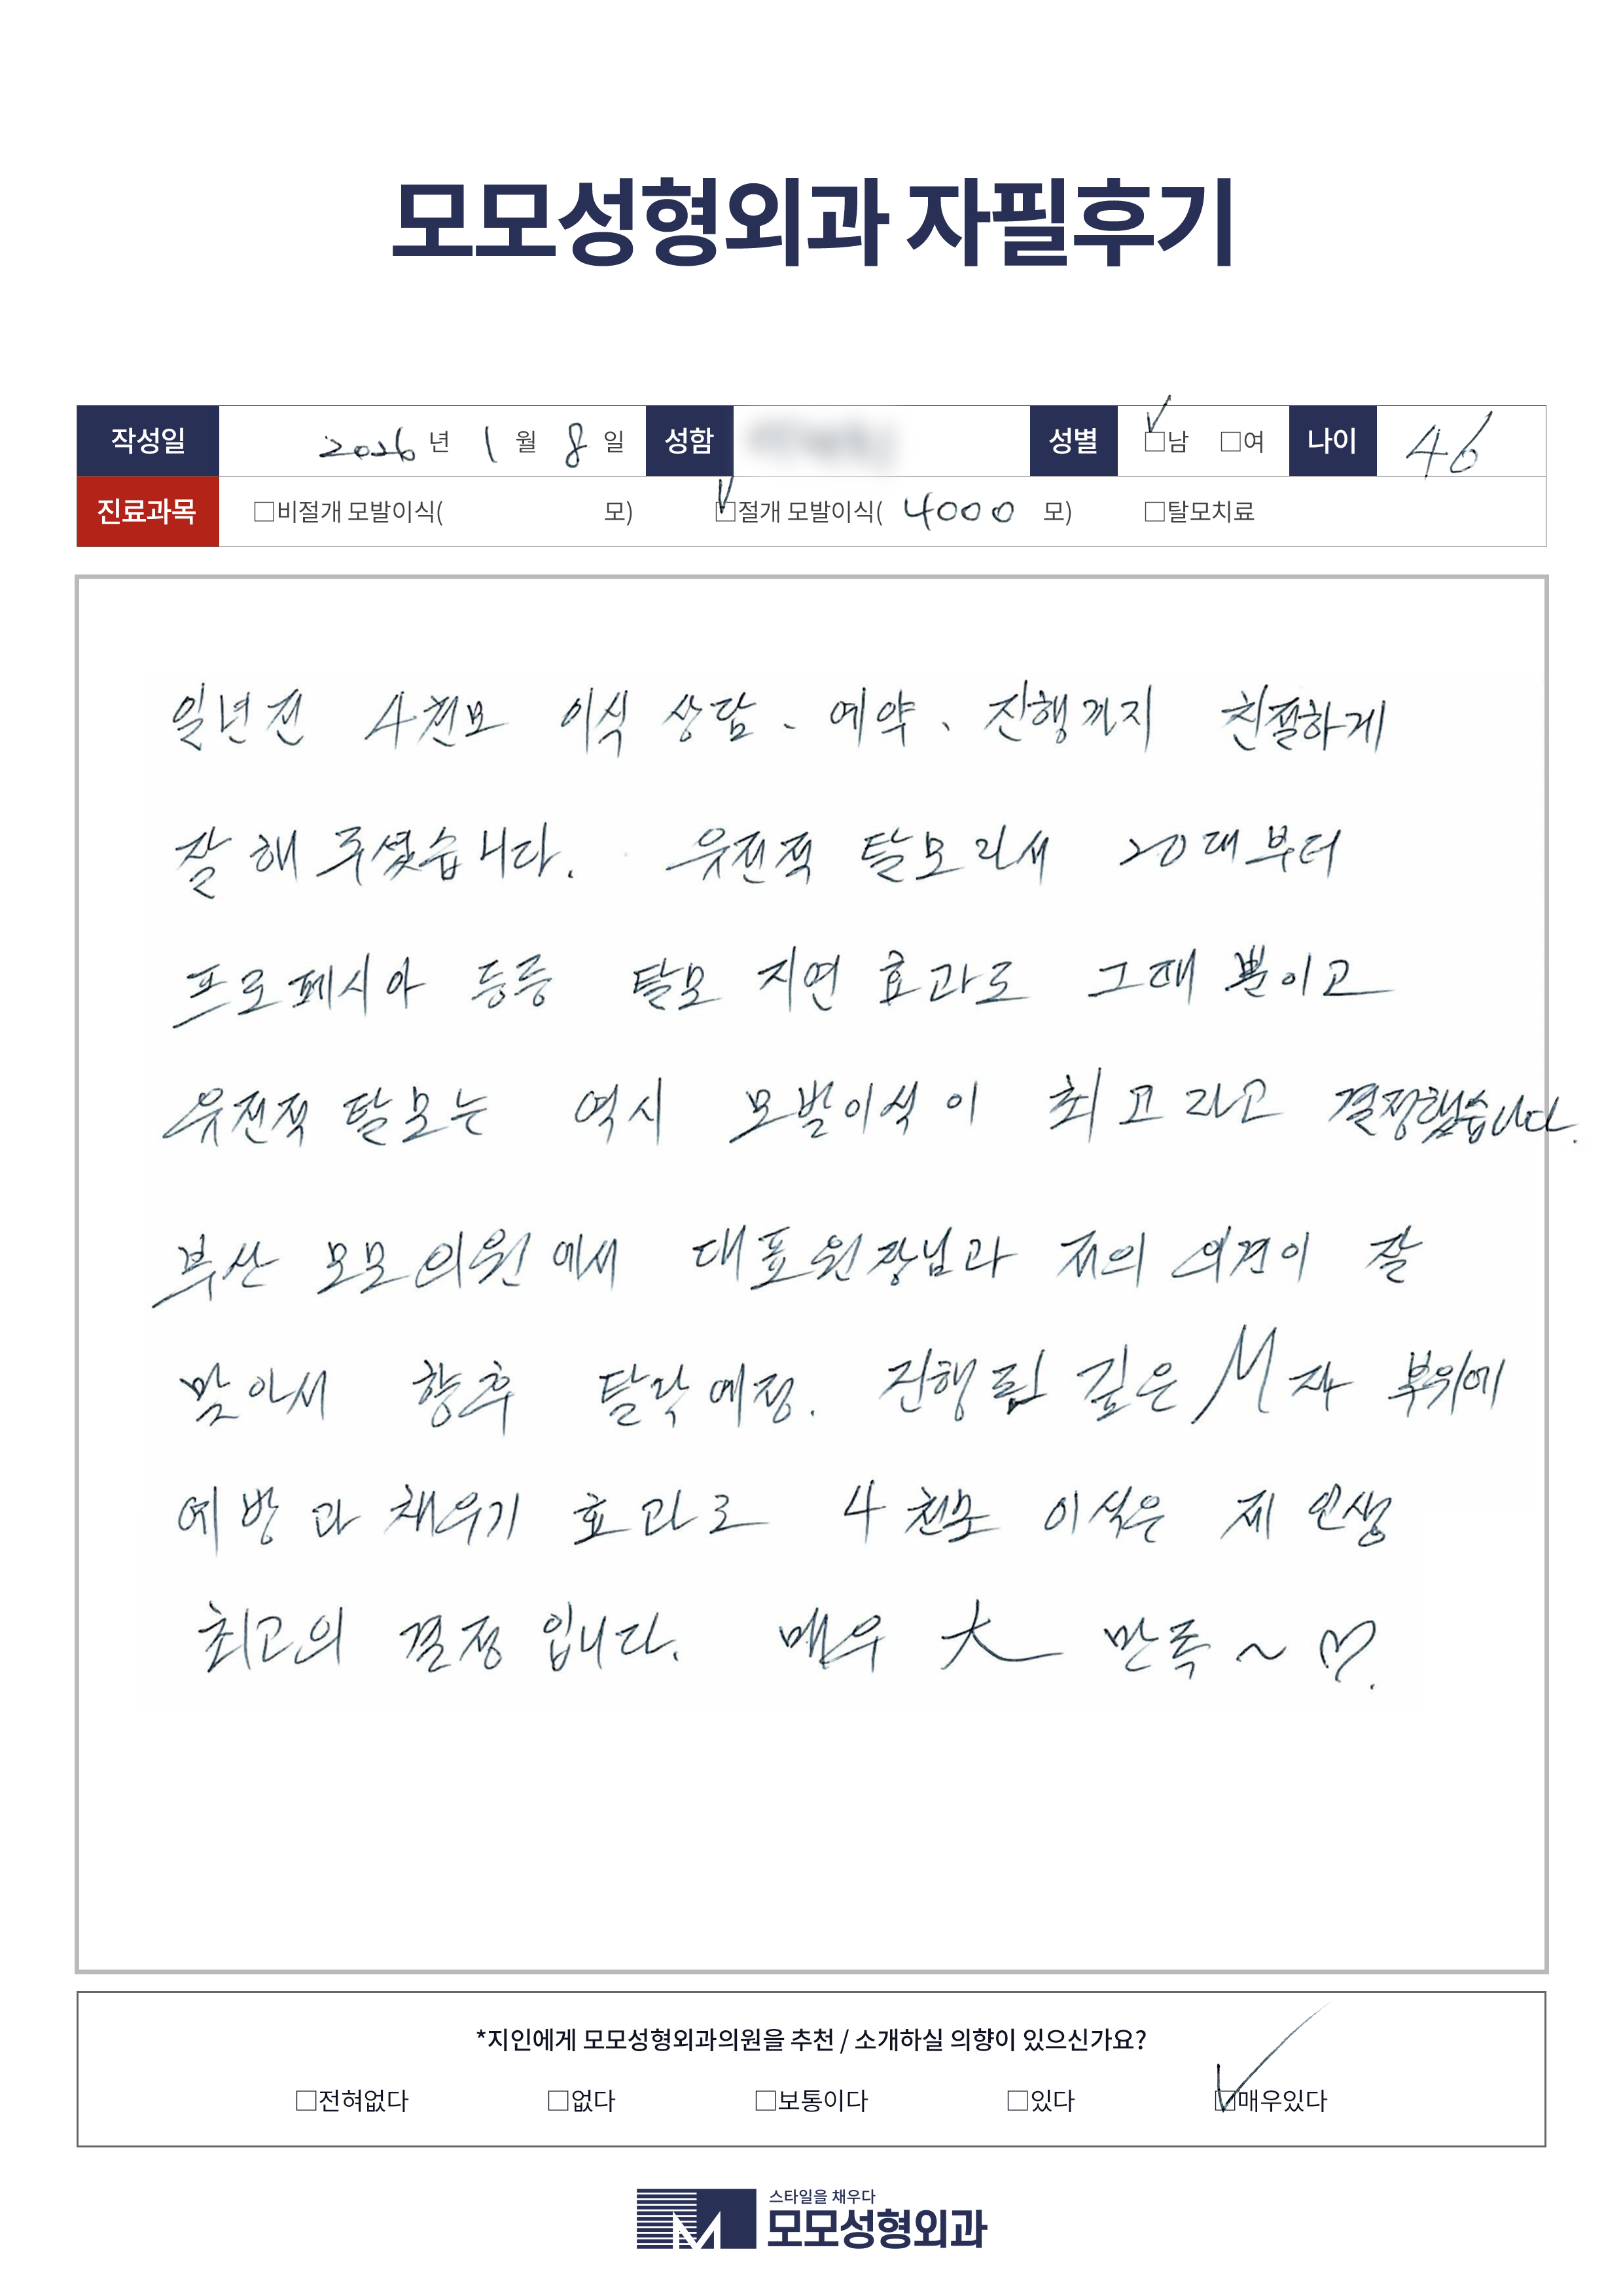 모모성형외과 자필후기
작성일 2026 년 1 월 8 일 성함 성별 ☑남 □여 나이 46
진료과목 □비절개 모발이식( 모) ☑절개 모발이식( 4000 모) □탈모치료
일년전 4천모 이식 상담、예약、진행까지 친절하게
잘 해 주셨습니다. 유전적 탈모라서 20대부터
프로페시아 등등 탈모 지연 효과도 그때 뿐이고
유전적 탈모는 역시 모발이식이 최고라고 결정했습니다.
부산 모모의원에서 대표원장님과 저의 의견이 잘
맞아서 향후 탈락예정. 진행될 깊은 M자 부위에
예방과 채우기 효과로 4천모 이식은 제 인생
최고의 결정입니다. 매우 大 만족~♡.
*지인에게 모모성형외과의원을 추천 / 소개하실 의향이 있으신가요?
□전혀없다 □없다 □보통이다 □있다 ☑매우있다
스타일을 채우다
모모성형외과